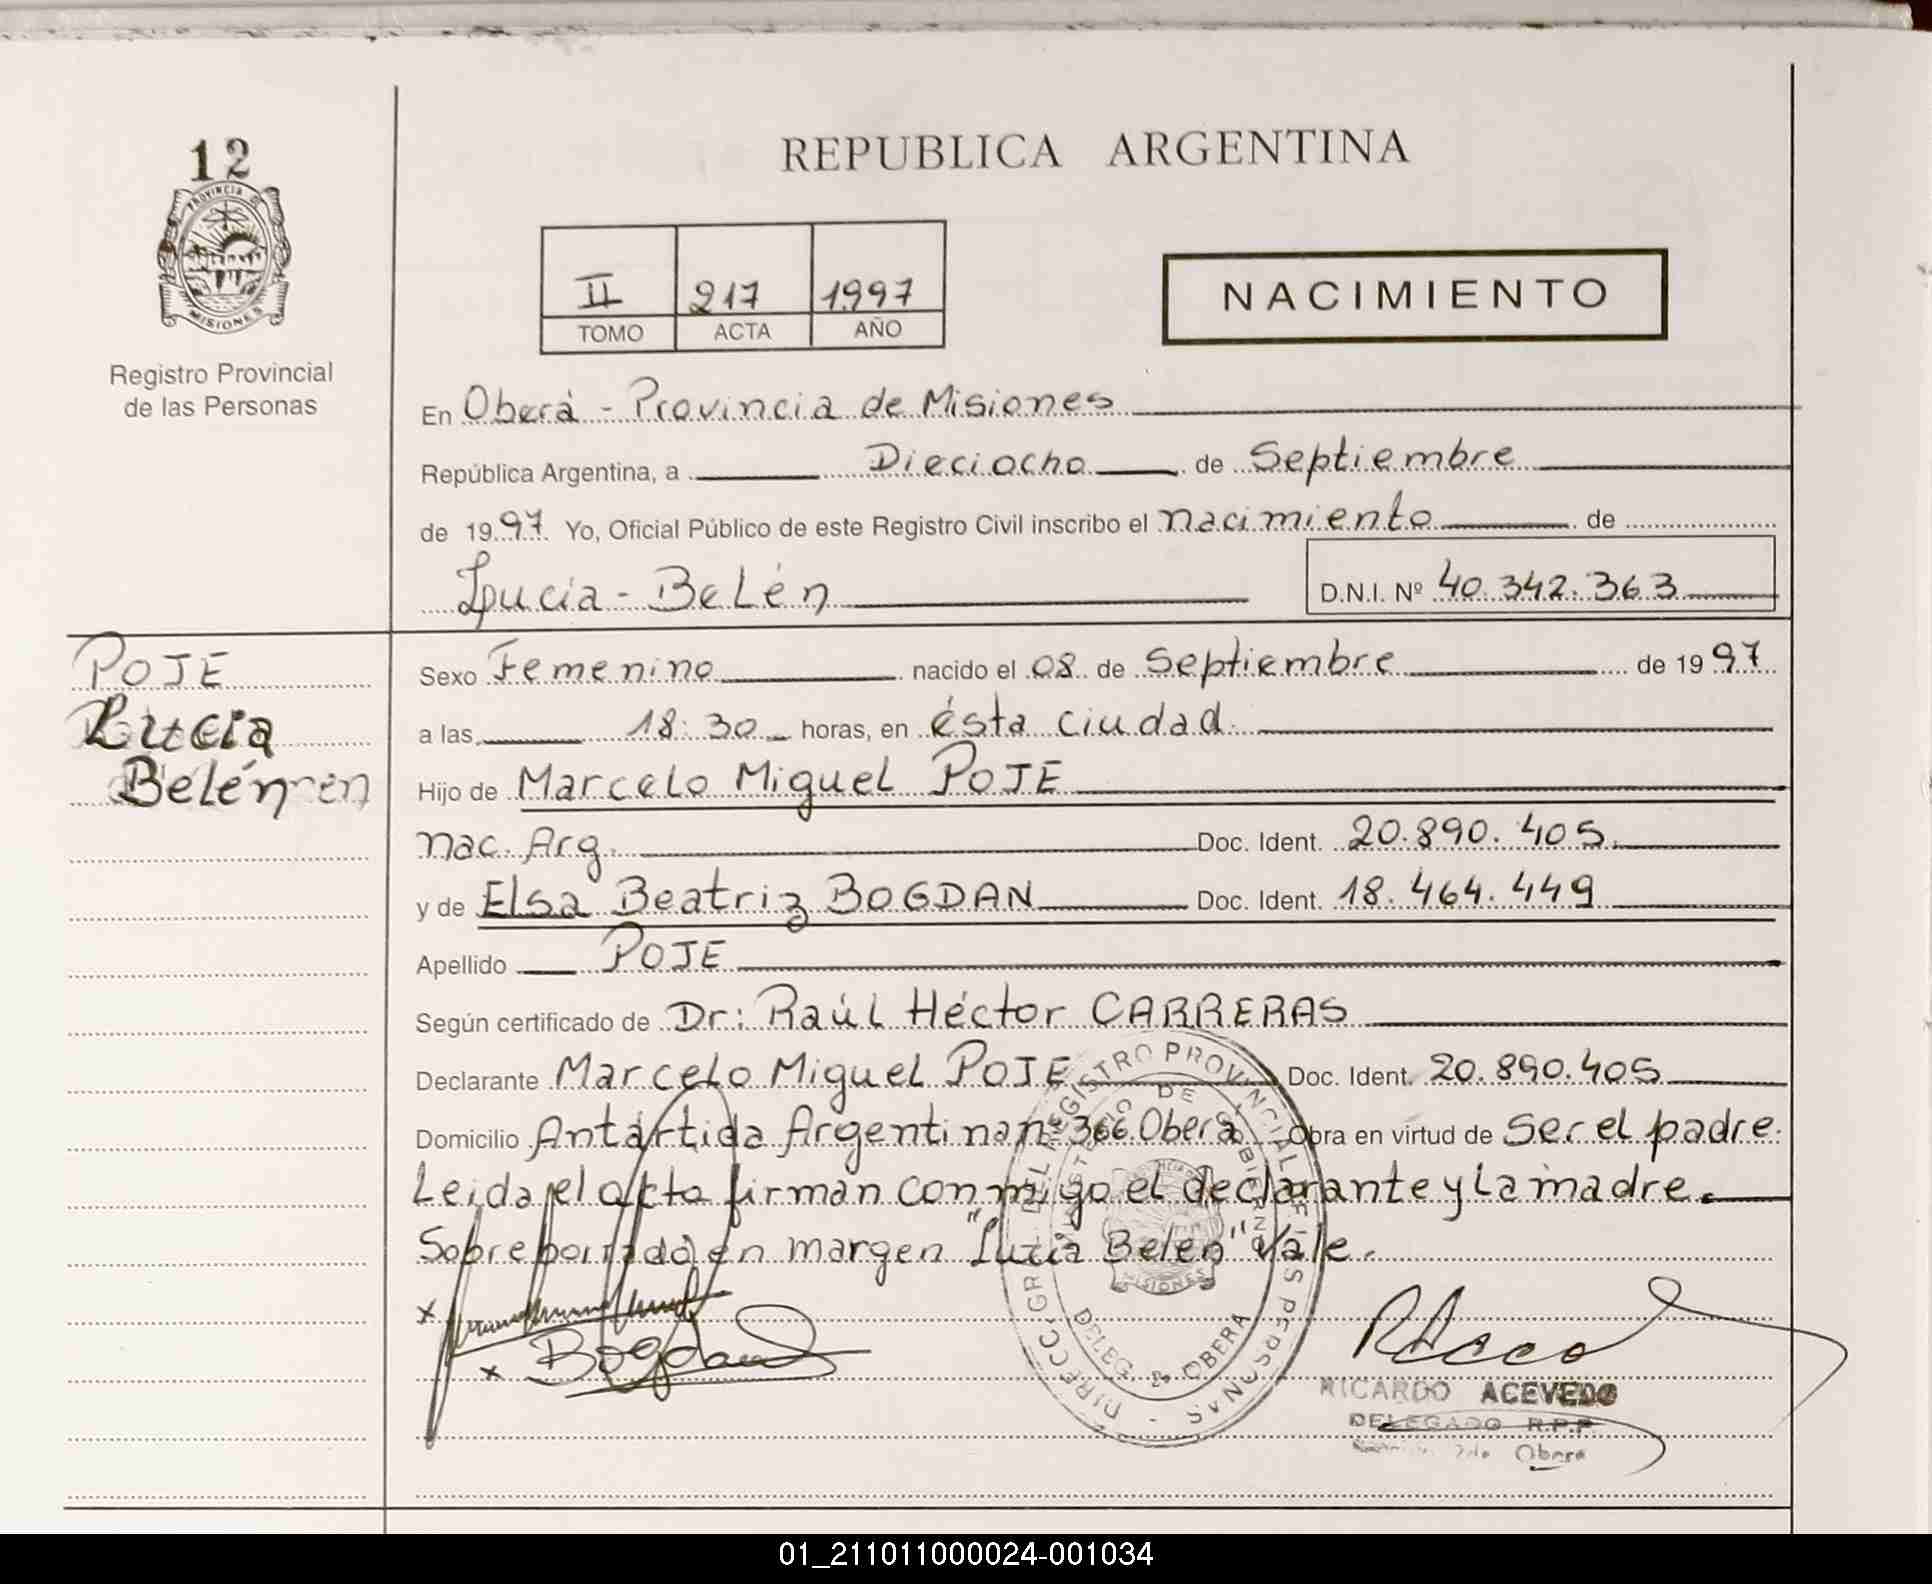 12
PROVINCIA DE
MISIONES
Registro Provincial
de las Personas
REPUBLICA ARGENTINA
II 217 1997
TOMO ACTA AÑO
NACIMIENTO
En Oberá - Provincia de Misiones
República Argentina, a Dieciocho de Septiembre
de 1997 Yo, Oficial Público de este Registro Civil inscribo el nacimiento de
Lucía - Belén
D.N.I. Nº 40.342.363
POJE
Lucía
Belén
Sexo Femenino nacido el 08 de Septiembre de 1997
a las 18:30 horas, en ésta ciudad.
Hijo de Marcelo Miguel POJE
nac. Arg. Doc. Ident. 20.890.405.
y de Elsa Beatriz BOGDAN Doc. Ident. 18.464.449
Apellido POJE
Según certificado de Dr: Raúl Héctor CARRERAS
Declarante Marcelo Miguel POJE Doc. Ident. 20.890.405
Domicilio Antártida Argentina nº 366 Oberá Obra en virtud de Ser el padre.
Leida el acta firman conmigo el declarante y la madre.
Sobreborrado en margen "Lucía Belén" Vale.
x
x Bogdan
DIRECC. GRAL. DEL REGISTRO PROVINCIAL DE LAS PERSONAS
MINISTERIO DE GOBIERNO
MISIONES
DELEG. 2º OBERA
RICARDO ACEVEDO
DELEGADO R.P.P.
2da Oberá
01_211011000024-001034